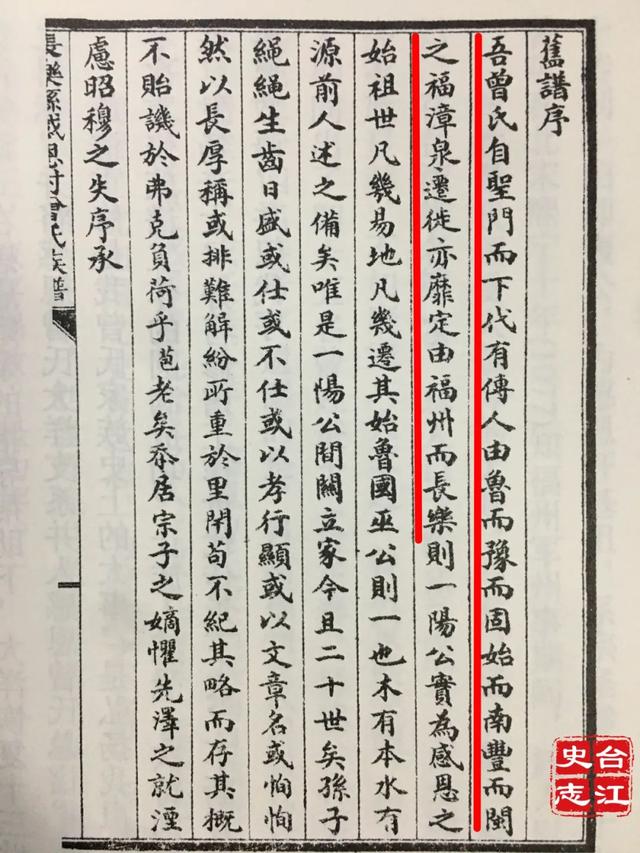 舊譜序
吾曾氏自聖門而下代有傳人由魯而豫而固始而南豐而閩
之福漳泉遷徙亦靡定由福州而長樂則一陽公實為感恩之
始祖世凡幾易地凡幾遷其始魯國巫公則一也木有本水有
源前人述之備矣唯是一陽公間關立家今且二十世矣孫子
繩繩生齒日盛或仕或不仕或以孝行顯或以文章名或恂恂
然以長厚稱或排難解紛所重於里閈苟不紀其略而存其概
不貽譏於弗克負荷乎苞老矣忝居宗子之嫡懼先澤之就湮
慮昭穆之失序承
長樂縣感恩村曾氏族譜
台江
史志